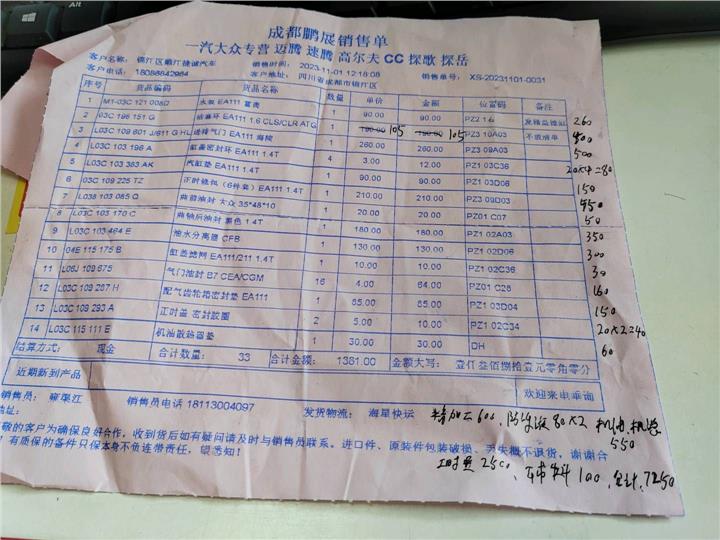 成都鹏展销售单
一汽大众专营 迈腾 速腾 高尔夫 CC 探歌 探岳
客户名称: 锦江区顺江捷诚汽车 销售时间: 2023-11-01 12:18:08 销售单号: XS-20231101-0031
客户电话: 18088842984 客户地址: 四川省成都市锦江区
序号 货品编码 货品名称 数量 单价 金额 位置码 备注
1 M1-03C 121 008D 水泵 EA111 1 90.00 90.00 PZ2 1.6 260
2 03C 198 151 G 活塞环 EA111 1.6 CLS/CLR ATG 1 190.00 105 190.00 105 PZ3 10A03 不退清单 800
3 L03C 109 601 J/611 G HL 进排气门 EA111 海陵 1 260.00 260.00 PZ3 09A03 500
4 L03C 103 198 A 缸盖密封环 EA111 1.4T 4 3.00 12.00 PZ1 03C36 20×4=80
5 L03C 103 383 AK 汽缸垫 EA111 1.4T 1 90.00 90.00 PZ1 03D06 150
6 03C 109 225 TZ 正时链包（6件套）EA111 1.4T 1 210.00 210.00 PZ3 09D03 450
7 L038 103 085 Q 曲前油封 大众 35*48*10 1 20.00 20.00 PZ01 C07 50
8 L03C 103 170 C 曲轴后油封 黑色 1.4T 1 180.00 180.00 PZ1 02A03 350
9 L03C 103 464 E 油水分离器 CFB 1 130.00 130.00 PZ1 02D06 300
10 04E 115 175 B 缸盖滤网 EA111/211 1.4T 1 10.00 10.00 PZ1 02C36 30
11 L06J 109 675 气门油封 B7 CEA/CGM 16 4.00 64.00 PZ01 C28 160
12 L03C 109 287 H 配气齿轮箱密封垫 EA111 1 85.00 85.00 PZ1 03D04 150
13 L03C 109 293 A 正时盖 密封胶圈 2 5.00 10.00 PZ1 02C34 20×2=40
14 L03C 115 111 E 机油散热器垫 1 30.00 30.00 DH 60
结算方式: 现金 合计数量: 33 合计金额: 1381.00 金额大写: 壹仟叁佰捌拾壹元零角零分
近期新到产品 欢迎来电垂询
销售员: 江 销售员电话 18113004097 发货物流: 海星快运 加工600、防冻液80×2 机油、机滤
地址: 550
敬的客户为确保良好合作，收到货后如有疑问请及时与销售员联系。进口件、原装件包装破损、丢失概不退货，谢谢合
！有质保的备件只保本身不负连带责任，望悉知！ 工时费2500、辅料100、合计、7250